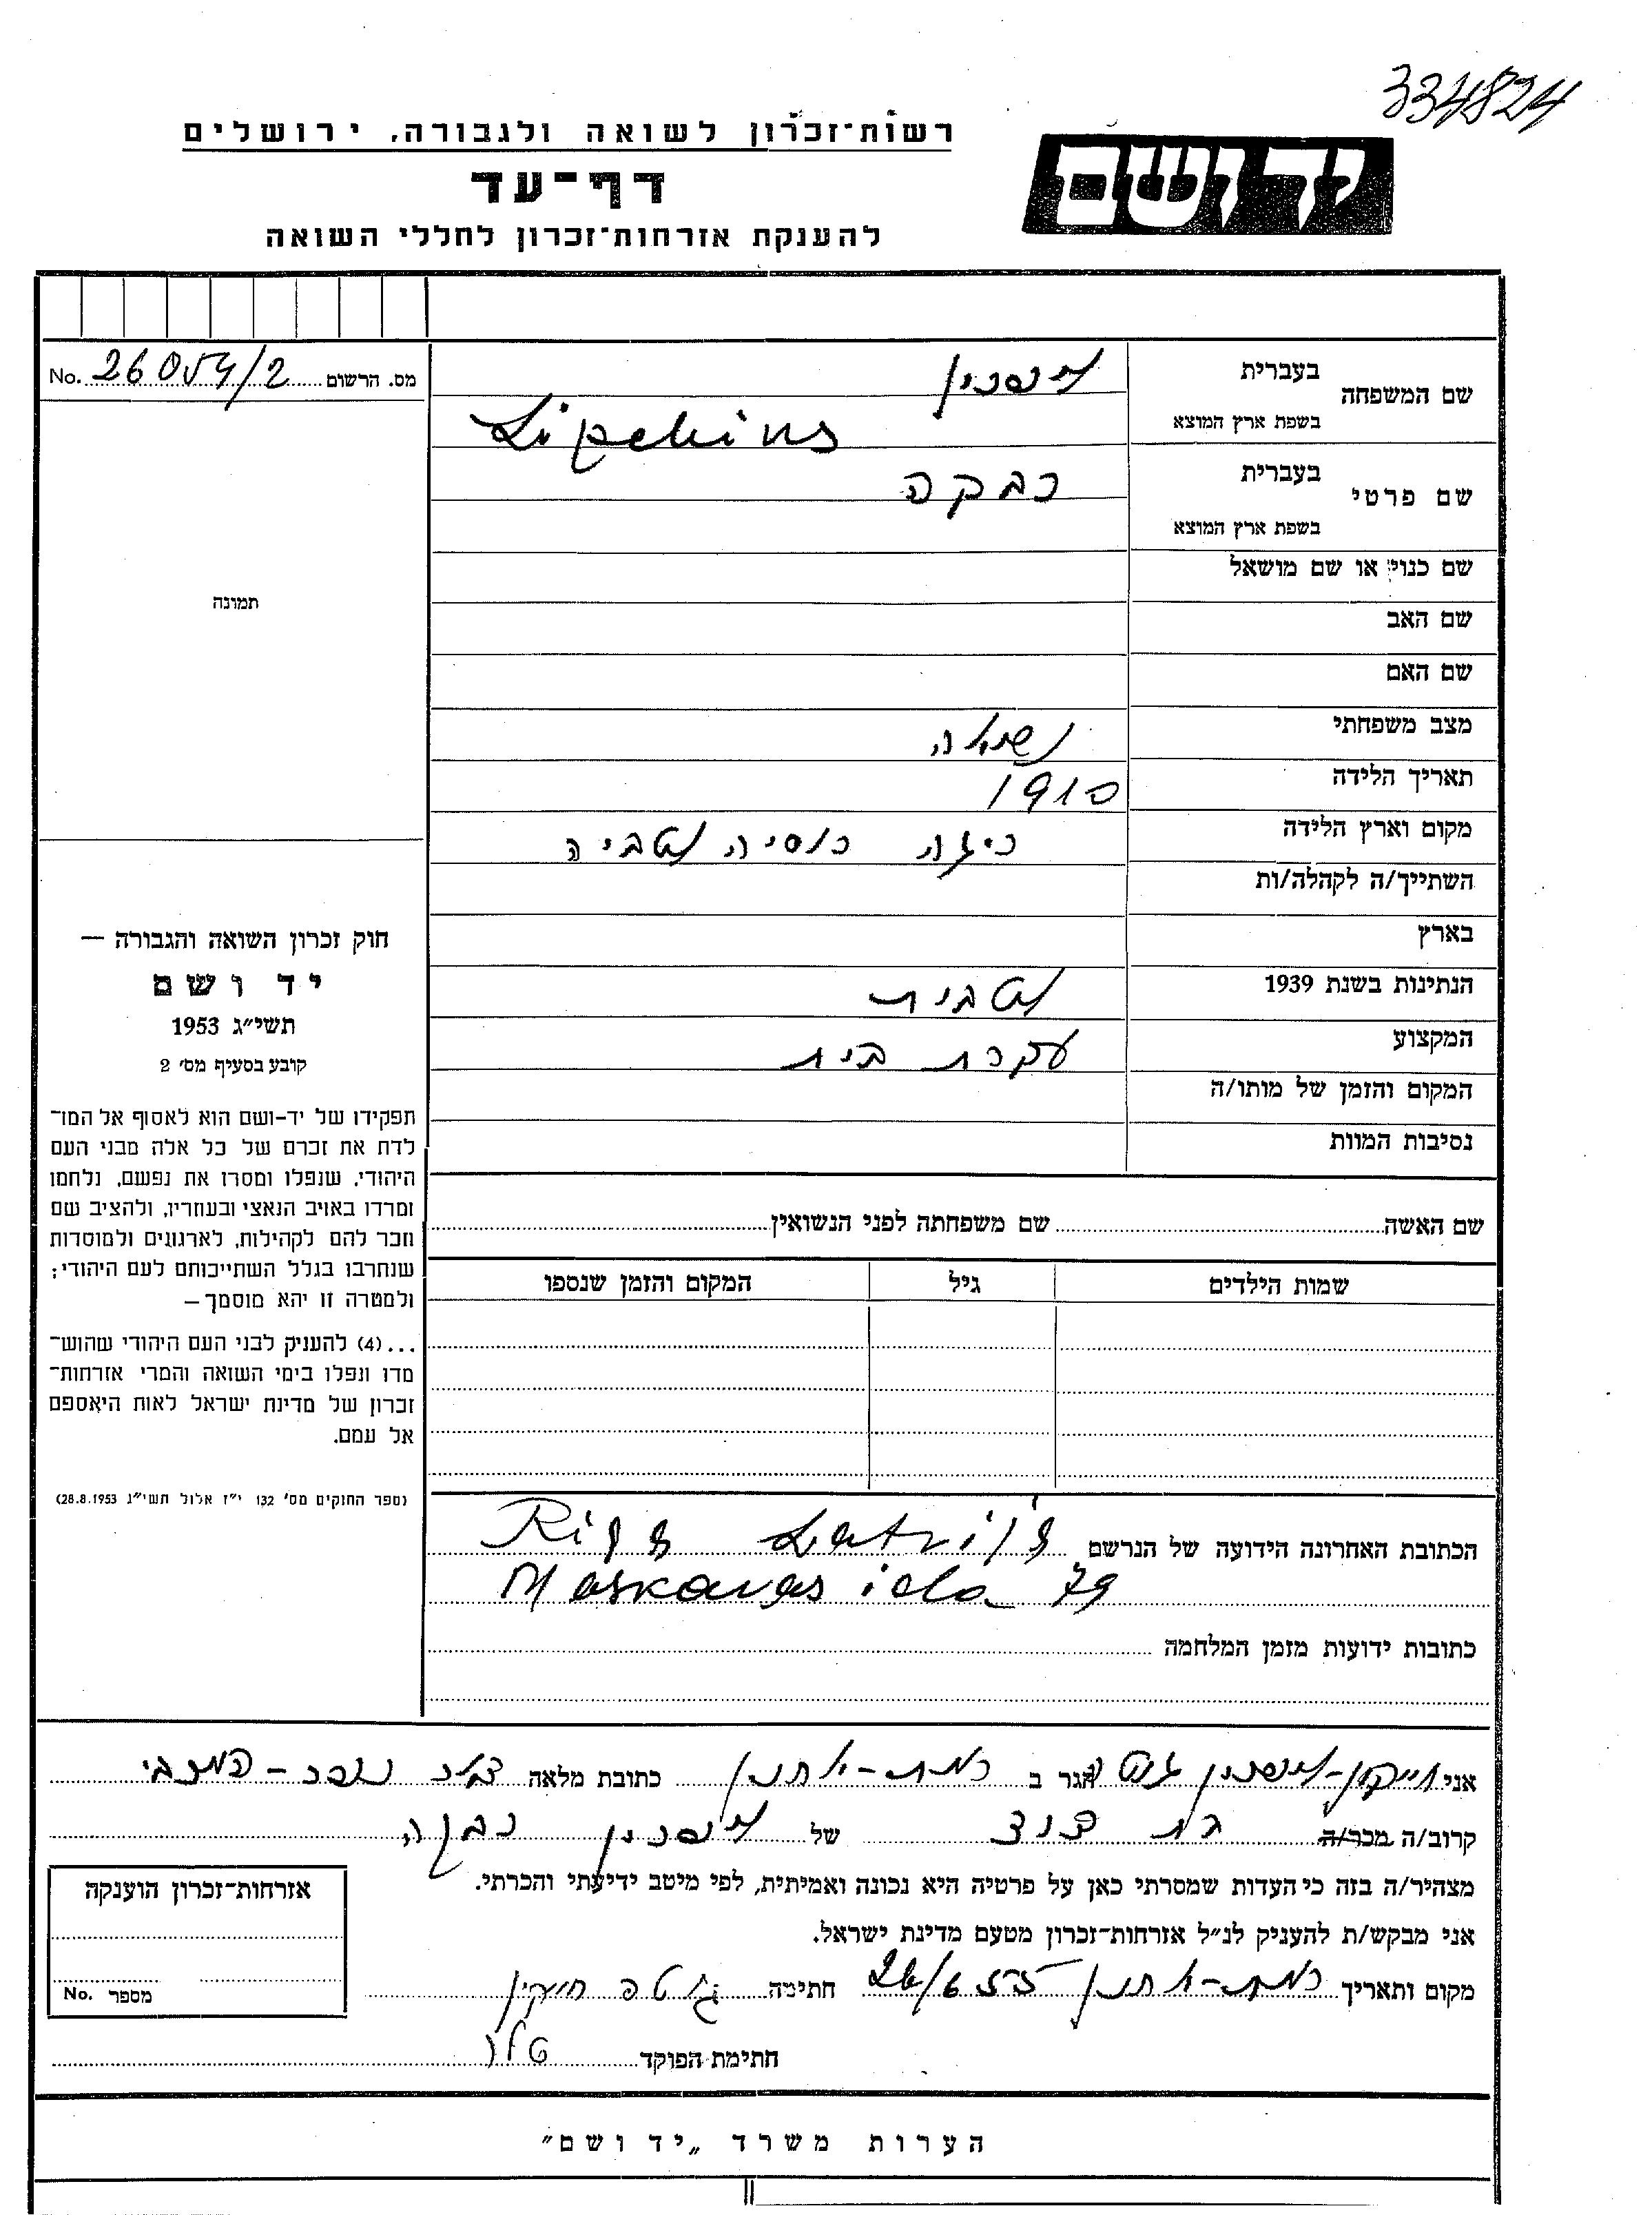 334824
רשות־זכרון לשואה ולגבורה, ירושלים
יד ושם
דף־עד
להענקת אזרחות־זכרון לחללי השואה
מס. הרשום 26054/2 No.
שם המשפחה
בעברית ליפסקין
בשפת ארץ המוצא Lipskins
שם פרטי
בעברית רבקה
בשפת ארץ המוצא
שם כנוי או שם מושאל
שם האב
שם האם
מצב משפחתי נשואה
תאריך הלידה 1910
מקום וארץ הלידה ריגה רוסיה לטביה
השתייך/ה לקהלה/ות
בארץ
הנתינות בשנת 1939 לטבית
המקצוע עקרת בית
המקום והזמן של מותו/ה
נסיבות המוות
תמונה
חוק זכרון השואה והגבורה —
יד ושם
תשי״ג 1953
קובע בסעיף מס׳ 2
תפקידו של יד-ושם הוא לאסוף אל המו־
לדת את זכרם של כל אלה מבני העם
היהודי, שנפלו ומסרו את נפשם, נלחמו
ומרדו באויב הנאצי ובעוזריו, ולהציב שם
וזכר להם לקהילות, לארגונים ולמוסדות
שנחרבו בגלל השתייכותם לעם היהודי;
ולמטרה זו יהא מוסמך —
...(4) להעניק לבני העם היהודי שהוש־
מדו ונפלו בימי השואה והמרי אזרחות־
זכרון של מדינת ישראל לאות היאספם
אל עמם.
(ספר החוקים מס׳ 132 י״ז אלול תשי״ג 28.8.1953)
שם האשה שם משפחתה לפני הנשואין
שמות הילדים גיל המקום והזמן שנספו
הכתובת האחרונה הידועה של הנרשם Riga Latvija
Maskavas iela 79
כתובות ידועות מזמן המלחמה
אני חייקין-ליפסקין גוטה הגר ב רמת-אהרון כתובת מלאה
קרוב/ה מכר/ה בת דוד של ליפסקין רבקה
מצהיר/ה בזה כי העדות שמסרתי כאן על פרטיה היא נכונה ואמיתית, לפי מיטב ידיעתי והכרתי.
אני מבקש/ת להעניק לנ״ל אזרחות־זכרון מטעם מדינת ישראל.
מקום ותאריך רמת-אהרון 26/6 55 חתימה גוטה חייקין
חתימת הפוקד
אזרחות־זכרון הוענקה
מספר No.
הערות משרד „יד ושם״